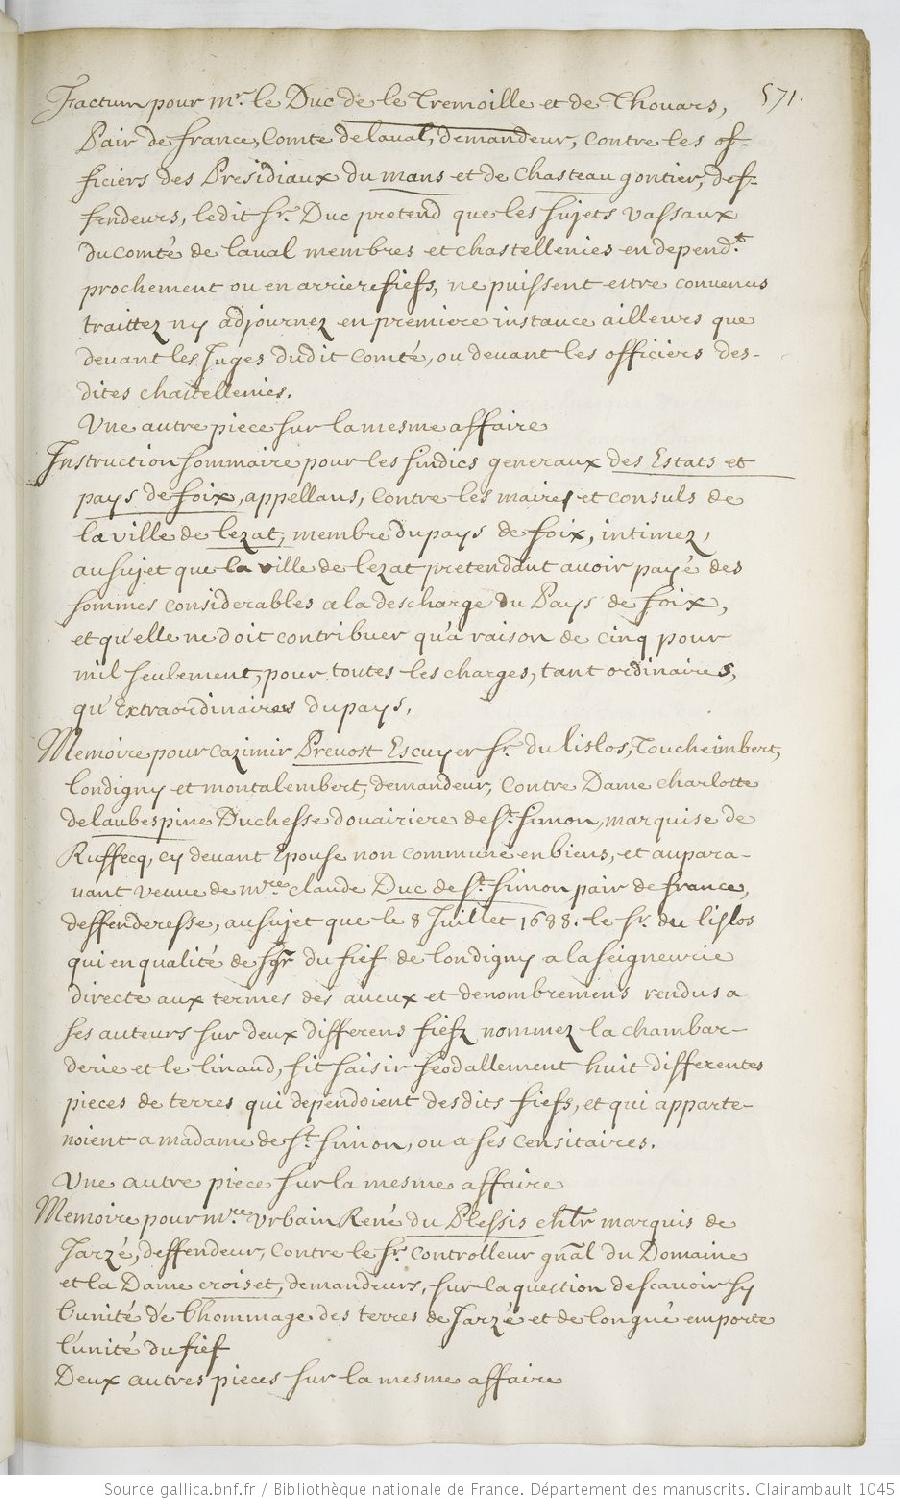 571.
Factum pour mr. le Duc de le Tremoille et de Thouars,
Pair de france, Comte de laval, demandeur, contre les of-
ficiers des Presidiaux du mans et de Chasteau gontier, def-
fendeurs, ledit sr. Duc pretend que les sujets vassaux
du Comté de laval membres et chastellenies en depend.t
prochement ou en arrierefiefs, ne puissent estre convenus
traittez ny adjournez en premiere instance ailleurs que
devant les Juges dudit Comté, ou devant les officiers des-
dites chastellenies.
Une autre piece sur la mesme affaire
Instruction sommaire pour les sindics generaux des Estats et
pays de foix, appellans, Contre les maires et consuls de
la ville de lezat, membre du pays de foix, intimez,
au sujet que la ville de lezat pretendant avoir payé des
sommes considerables a la descharge du Pays de foix,
et qu'elle ne doit contribuer qu'a raison de cinq pour
mil seulement, pour toutes les charges, tant ordinaires,
qu'Extraordinaires du pays.
Memoire pour Cazimir Prevost Escuyer sr. du lislos, Toucheimbert,
londigny et montalembert, demandeur, Contre Dame charlotte
de laubespine Duchesse douairiere de st. simon, marquise de
Ruffecq, cy devant Epouse non commune en biens, et aupara-
vant veuve de mre. claude Duc de st. simon pair de france,
deffenderesse, au sujet que le 8 Juillet 1688. le sr. du lislos
qui en qualité de sgr du fief de londigny a la seigneurie
directe aux termes des aveux et denombremens rendus a
ses auteurs sur deux differens fiefz nommez la chambar-
derie et le linaud, fit saisir feodallement huit differentes
pieces de terres qui dependoient desdits fiefs, et qui apparte-
noient a madame de st. simon, ou a ses censitaires.
Une autre piece sur la mesme affaire
Memoire pour mre. Urbain René du Plessis chlr marquis de
Jarzé, deffendeur, Contre le sr. Controlleur gnãl du Domaine
et la Dame croiset, demandeurs, sur la question de scavoir sy
l'unité de l'hommage des terres de Jarzé et de longué emporte
l'unité du fief
Deux autres pieces sur la mesme affaire
Source gallica.bnf.fr / Bibliothèque nationale de France. Département des manuscrits. Clairambault 1045